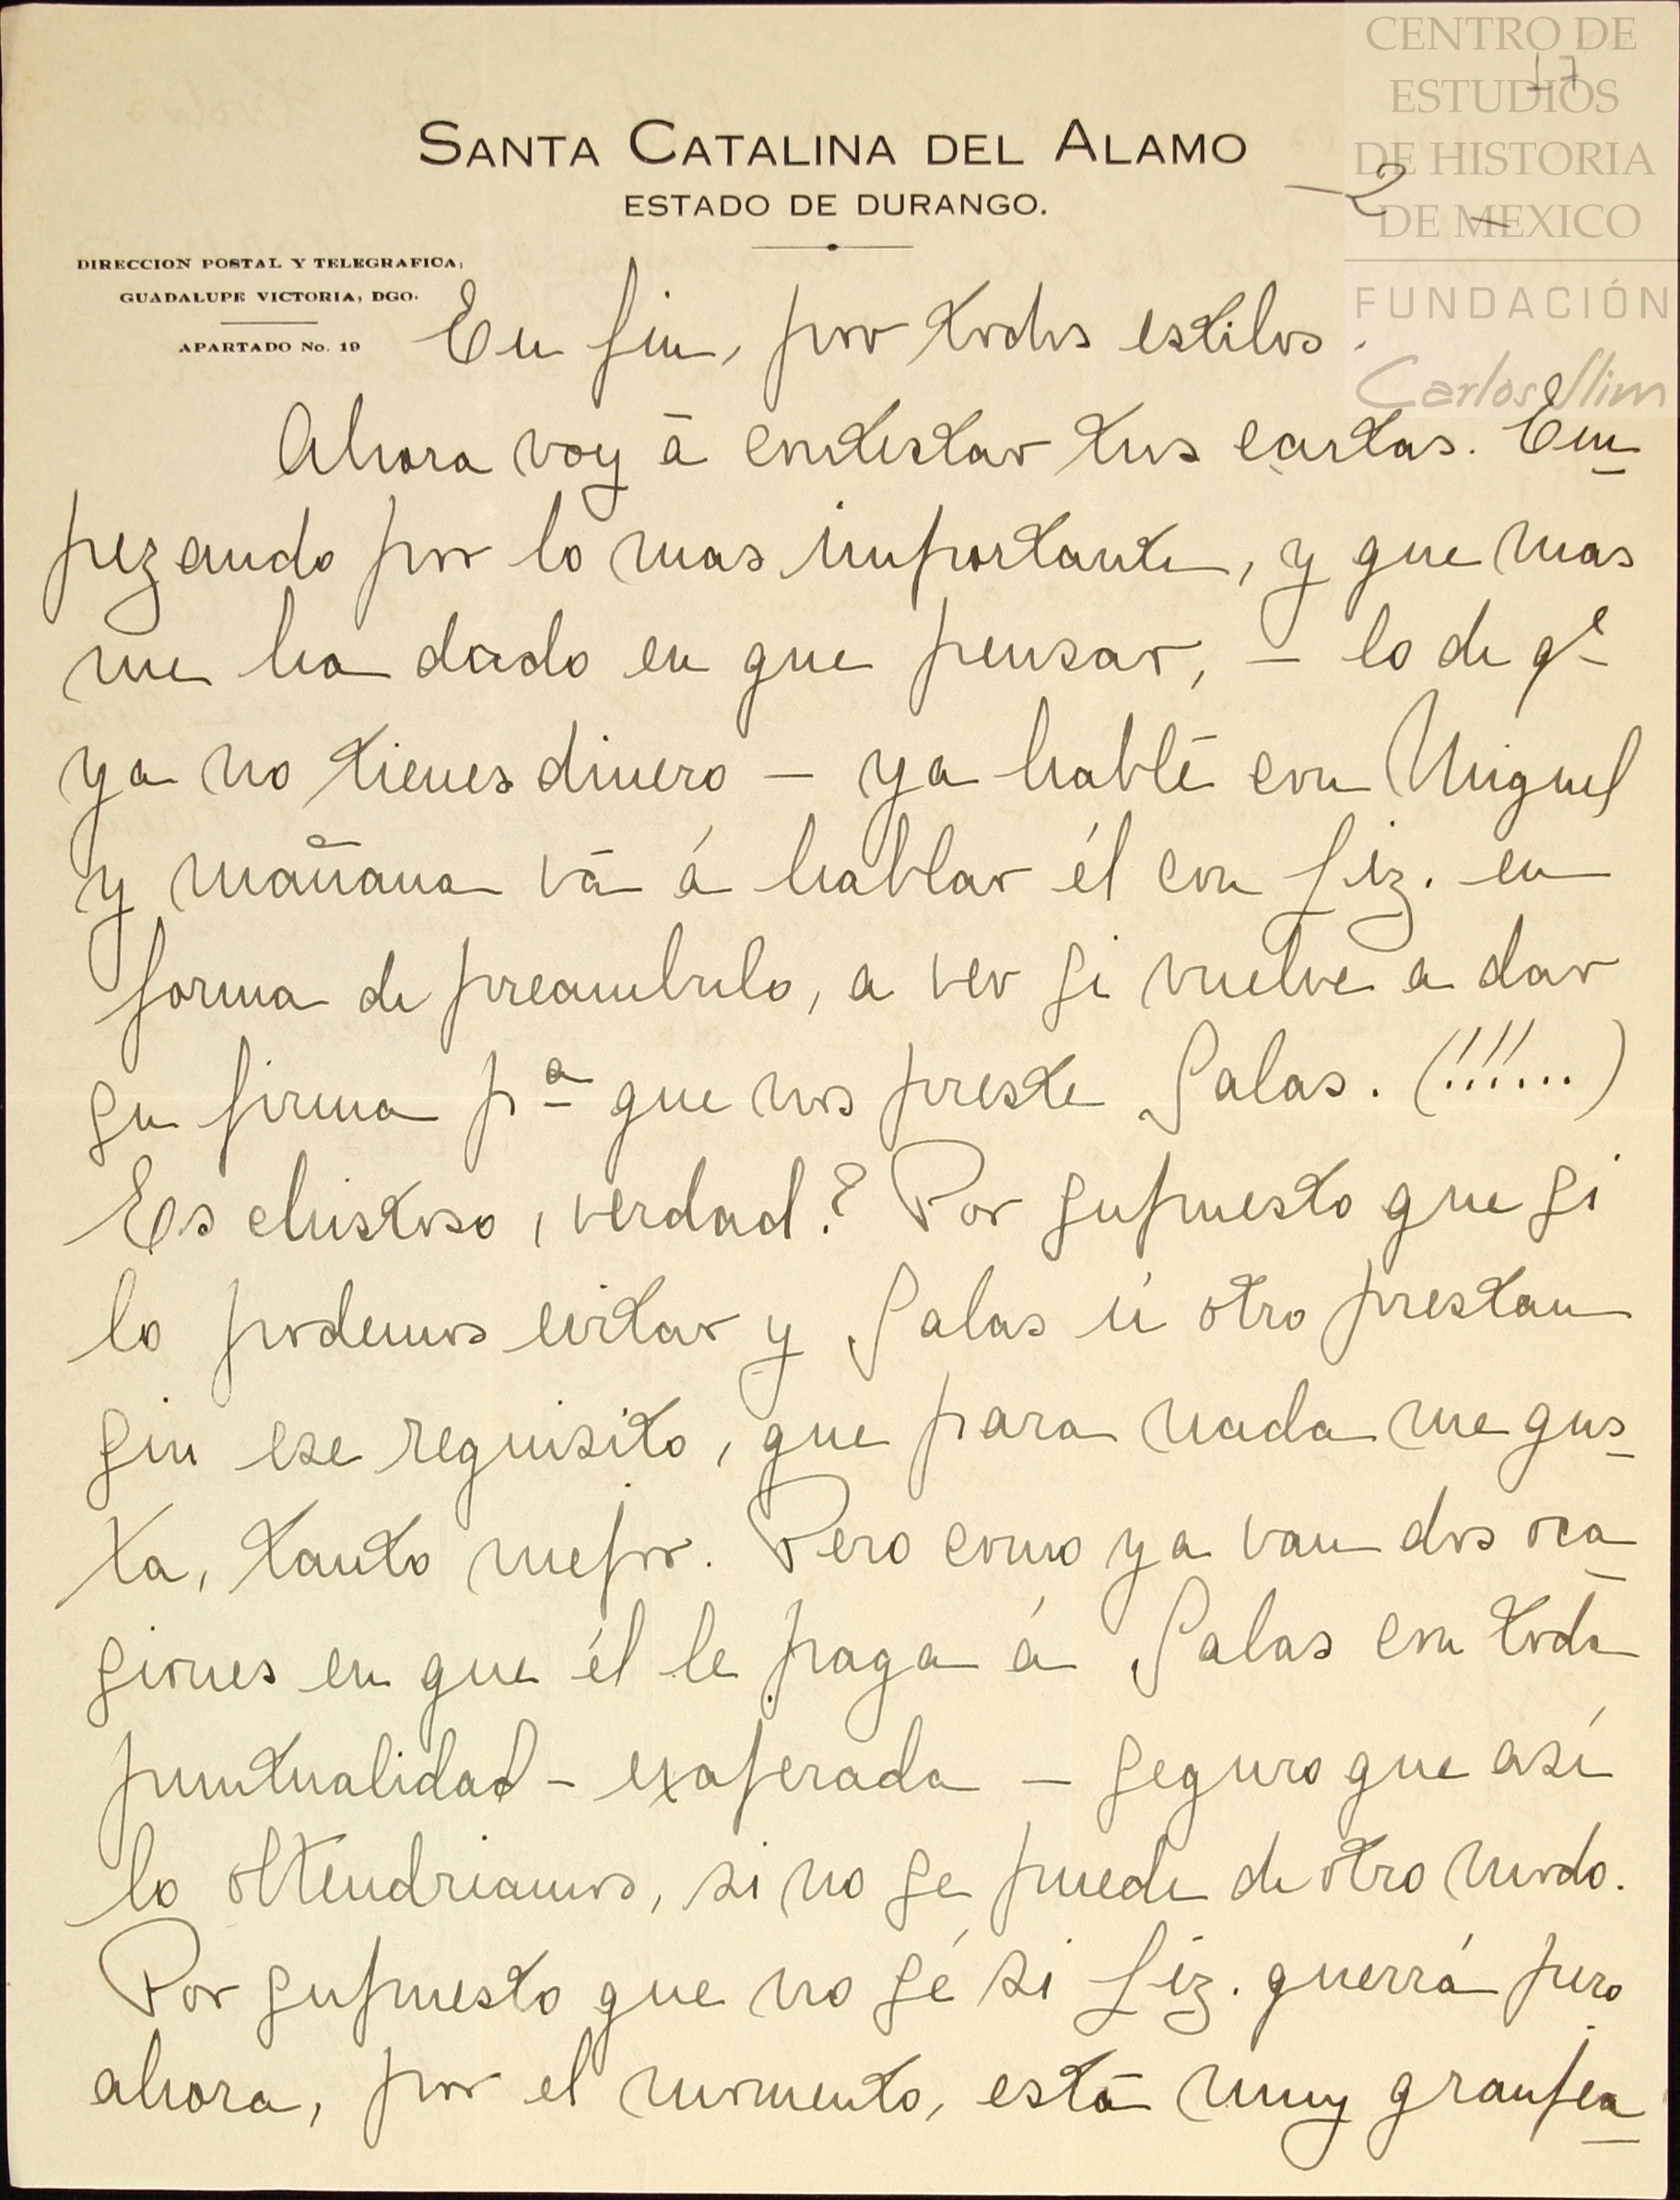 CENTRO DE
ESTUDIOS
DE HISTORIA
DE MEXICO
FUNDACIÓN
Carlos Slim
17
SANTA CATALINA DEL ALAMO
ESTADO DE DURANGO.
— 2 —
DIRECCION POSTAL Y TELEGRAFICA,
GUADALUPE VICTORIA, DGO.
APARTADO No. 19
En fin, por todos estilos.
Ahora voy á contestar tus cartas. Em-
pezando por lo mas importante, y que mas
me ha dado en que pensar, — lo de qe
ya no tienes dinero — ya hablé con Miguel
y mañana vá á hablar él con Liz. en
forma de preambulo, a ver si vuelve a dar
su firma pa que nos preste Salas. (!!!...)
Es chistoso, verdad? Por supuesto que si
lo podemos evitar y Salas ú otro prestan
sin ese requisito, que para nada me gus-
ta, tanto mejor. Pero como ya van dos oca-
siones en que él le paga á Salas con toda
puntualidad - exajerada — seguro que así
lo obtendriamos, si no se puede de otro modo.
Por supuesto que no sé si Liz. querrá pero
ahora, por el momento, está muy granjea-